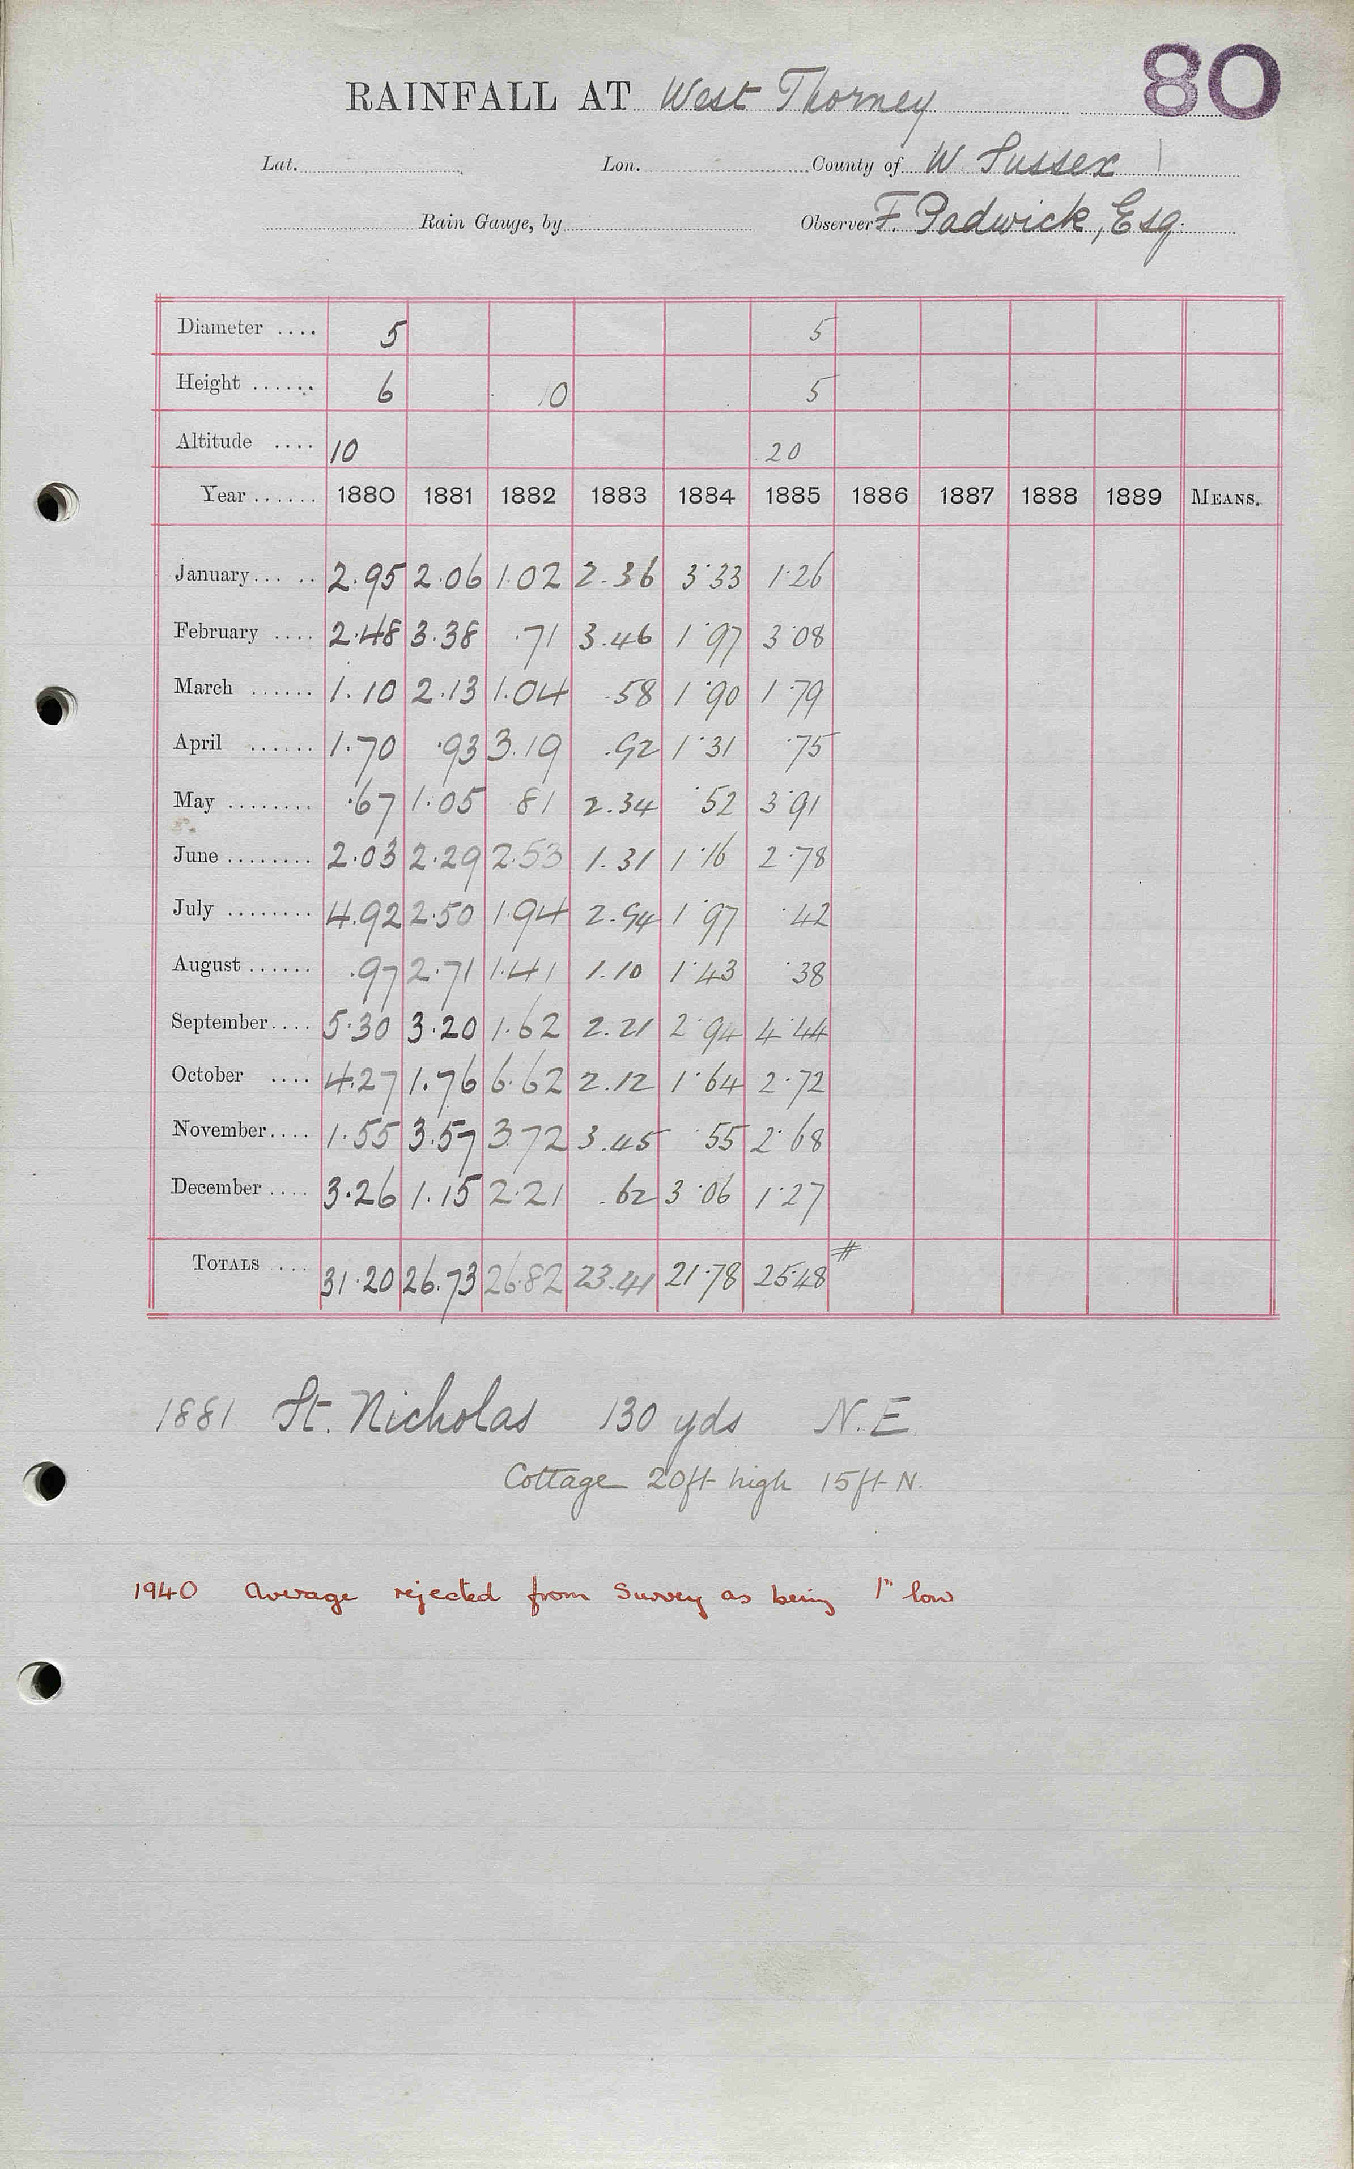 80
RAINFALL AT West Thorney
Lat. Lon. County of W. Sussex
Rain Gauge, by Observer F. Padwick, Esq.
Diameter .... 5 5
Height ...... 6 10 5
Altitude .... 10 20
Year ...... 1880 1881 1882 1883 1884 1885 1886 1887 1888 1889 MEANS.
January... .. 2.95 2.06 1.02 2.36 3.33 1.26
February .... 2.48 3.38 .71 3.46 1.97 3.08
March ...... 1.10 2.13 1.04 .58 1.90 1.79
April ...... 1.70 .93 3.19 .92 1.31 .75
May ........ .67 1.05 81 2.34 .52 3.91
June ........ 2.03 2.29 2.53 1.31 1.16 2.78
July ........ 4.92 2.50 1.94 2.94 1.97 .42
August ...... .97 2.71 1.41 1.10 1.43 .38
September.... 5.30 3.20 1.62 2.21 2.94 4.44
October .... 4.27 1.76 6.62 2.12 1.64 2.72
November.... 1.55 3.57 3.72 3.45 .55 2.68
December .... 3.26 1.15 2.21 .62 3.06 1.27
TOTALS ... 31.20 26.73 26.82 23.41 21.78 25.48 #
1881 St. Nicholas 130 yds N.E.
Cottage 20ft high 15ft N.
1940 Average rejected from Survey as being 1" low